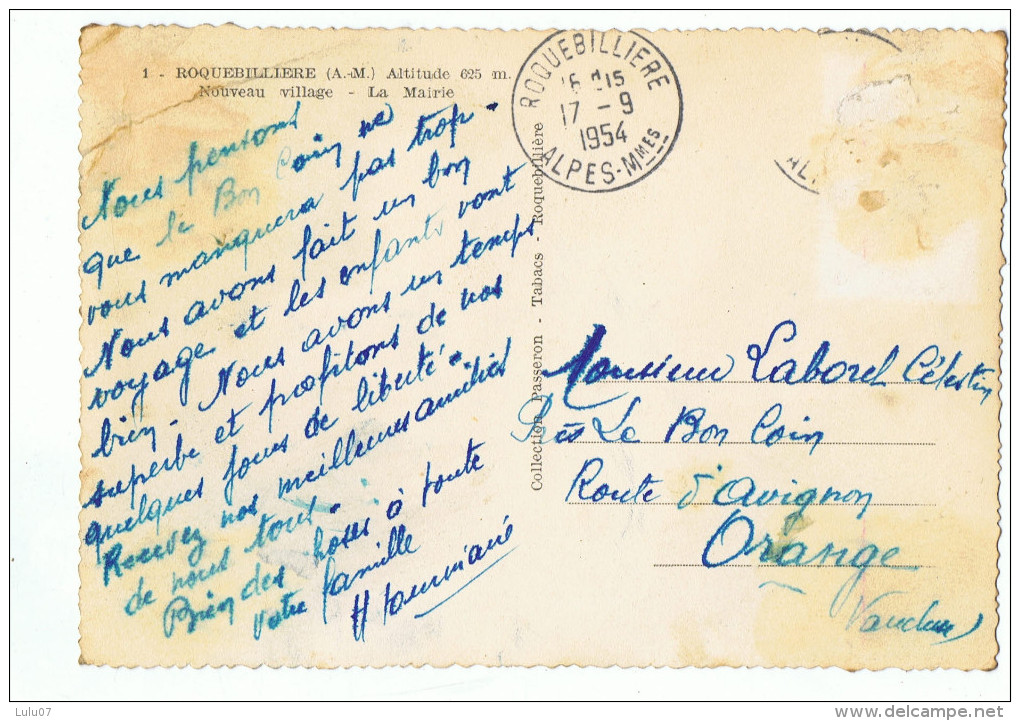 1 - ROQUEBILLIERE (A.-M.) Altitude 625 m.
Nouveau village - La Mairie
Nous pensons
que le Bon Coin ne
vous manquera pas trop.
Nous avons fait un bon
voyage et les enfants vont
bien. Nous avons un temps
superbe et profitons de nos
quelques jours de liberté.
Recevez nos meilleures amitiés
de nous tous.
Bien des choses à toute
votre famille
ROQUEBILLIERE
18 H 15
17 - 9
1954
ALPES-MMES
AL
Collection Passeron - Tabacs - Roquebillière
Monsieur Laborel Célestin
Près Le Bon Coin
Route d'Avignon
Orange
Vaucluse
Lulu07
www.delcampe.net